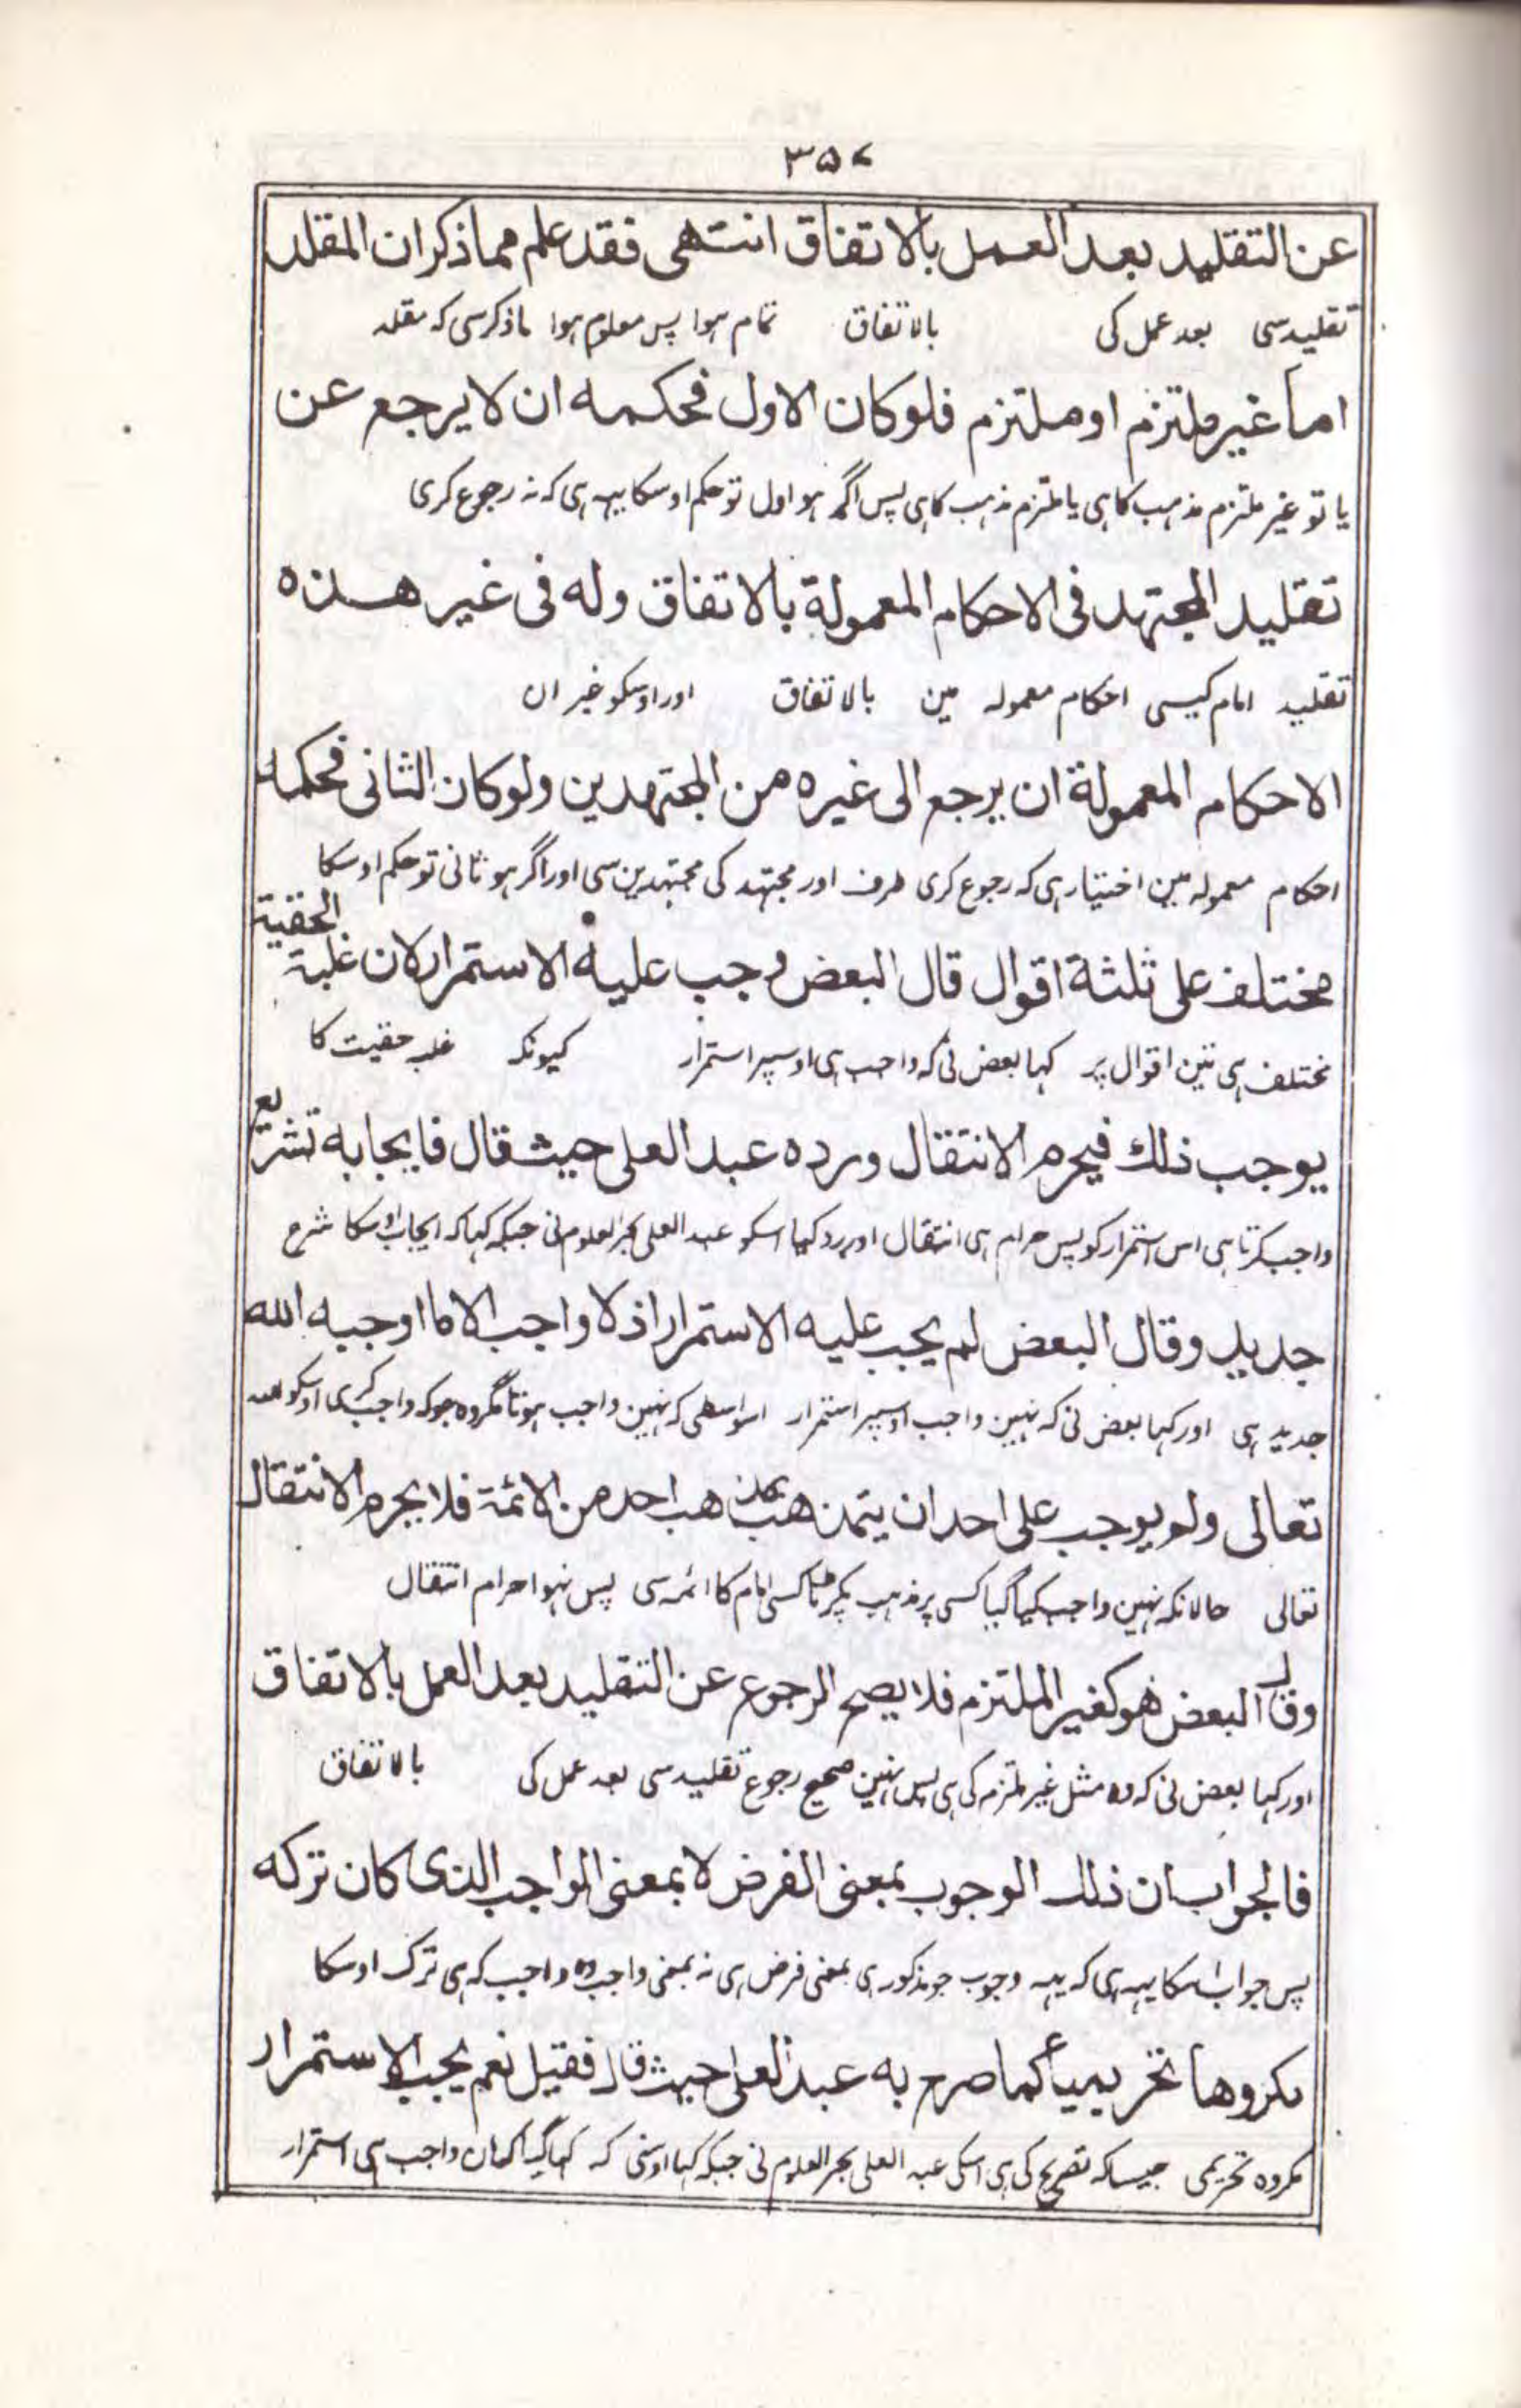 ۳۵۷
عن التقليد بعد العمل بالاتفاق انتهى فقد علم مما ذكر ان المقلد
تقلید سی بعد عمل کی بالاتفاق تمام ہوا پس معلوم ہوا ماذکر سی کہ مقلد
اما غير ملتزم او ملتزم فلو كان الاول فحكمه ان لا يرجع عن
یا تو غیر ملتزم مذہب کا ہی یا ملتزم مذہب کا ہی پس اگر ہو اول تو حکم اوسکا یہہ ہی کہ نہ رجوع کری
تقليد المجتهد فى الاحكام المعمولة بالاتفاق وله فى غير هذه
تقلید امام کیسی احکام معمولہ مین بالاتفاق اور اوسکو غیر ان
الاحكام المعمولة ان يرجع الى غيره من المجتهدين ولو كان الثانى فحكمه
احکام معمولہ مین اختیار ہی کہ رجوع کری طرف اور مجتہد کی مجتہدین سی اور اگر ہو ثانی تو حکم اوسکا
مختلف على ثلثة اقوال قال البعض وجب عليه الاستمرار لان غلبة الحقية
مختلف ہی تین اقوال پر کہا بعض نی کہ واجب ہی اوسپر استمرار کیونکہ غلبہ حقیت کا
يوجب ذلك فيحرم الانتقال ورده عبد العلى حيث قال فايجابه تشريع
واجب کرتا ہی اس استمرار کو پس حرام ہی انتقال اور رد کیا اسکو عبد العلی بحر العلوم نی جبکہ کہا کہ ایجاب اوسکا شرح
جديد وقال البعض لم يجب عليه الاستمرار اذ لا واجب الا ما اوجبه الله
جدید ہی اور کہا بعض نی کہ نہین واجب اوسپر استمرار اسواسطی کہ نہین واجب ہوتا مگر وہ جو کہ واجب کری اوسکو اللہ
تعالى ولم يوجب على احد ان يتمذهب بمذهب احد من الائمة فلا يحرم الانتقال
تعالی حالانکہ نہین واجب کیا گیا کسی پر مذہب پکڑنا کسی امام کا ائمہ سی پس نہوا حرام انتقال
وقال البعض هو كغير الملتزم فلا يصح الرجوع عن التقليد بعد العمل بالاتفاق
اور کہا بعض نی کہ وہ مثل غیر ملتزم کی ہی پس نہین صحیح رجوع تقلید سی بعد عمل کی بالاتفاق
فالجواب ان ذلك الوجوب بمعنى الفرض لا بمعنى الواجب الذى كان تركه
پس جواب اسکا یہہ ہی کہ یہہ وجوب جو مذکور ہی بمعنی فرض ہی نہ بمعنی واجب وہ واجب کہ ہی ترک اوسکا
مكروها تحريميا كما صرح به عبد العلى حيث قال فقيل نعم يجب الاستمرار
مکروہ تحریمی جیسا کہ تصریح کی ہی اسکی عبد العلی بحر العلوم نی جبکہ کہا اوسنی کہ کہا گیا کہ ہان واجب ہی استمرار